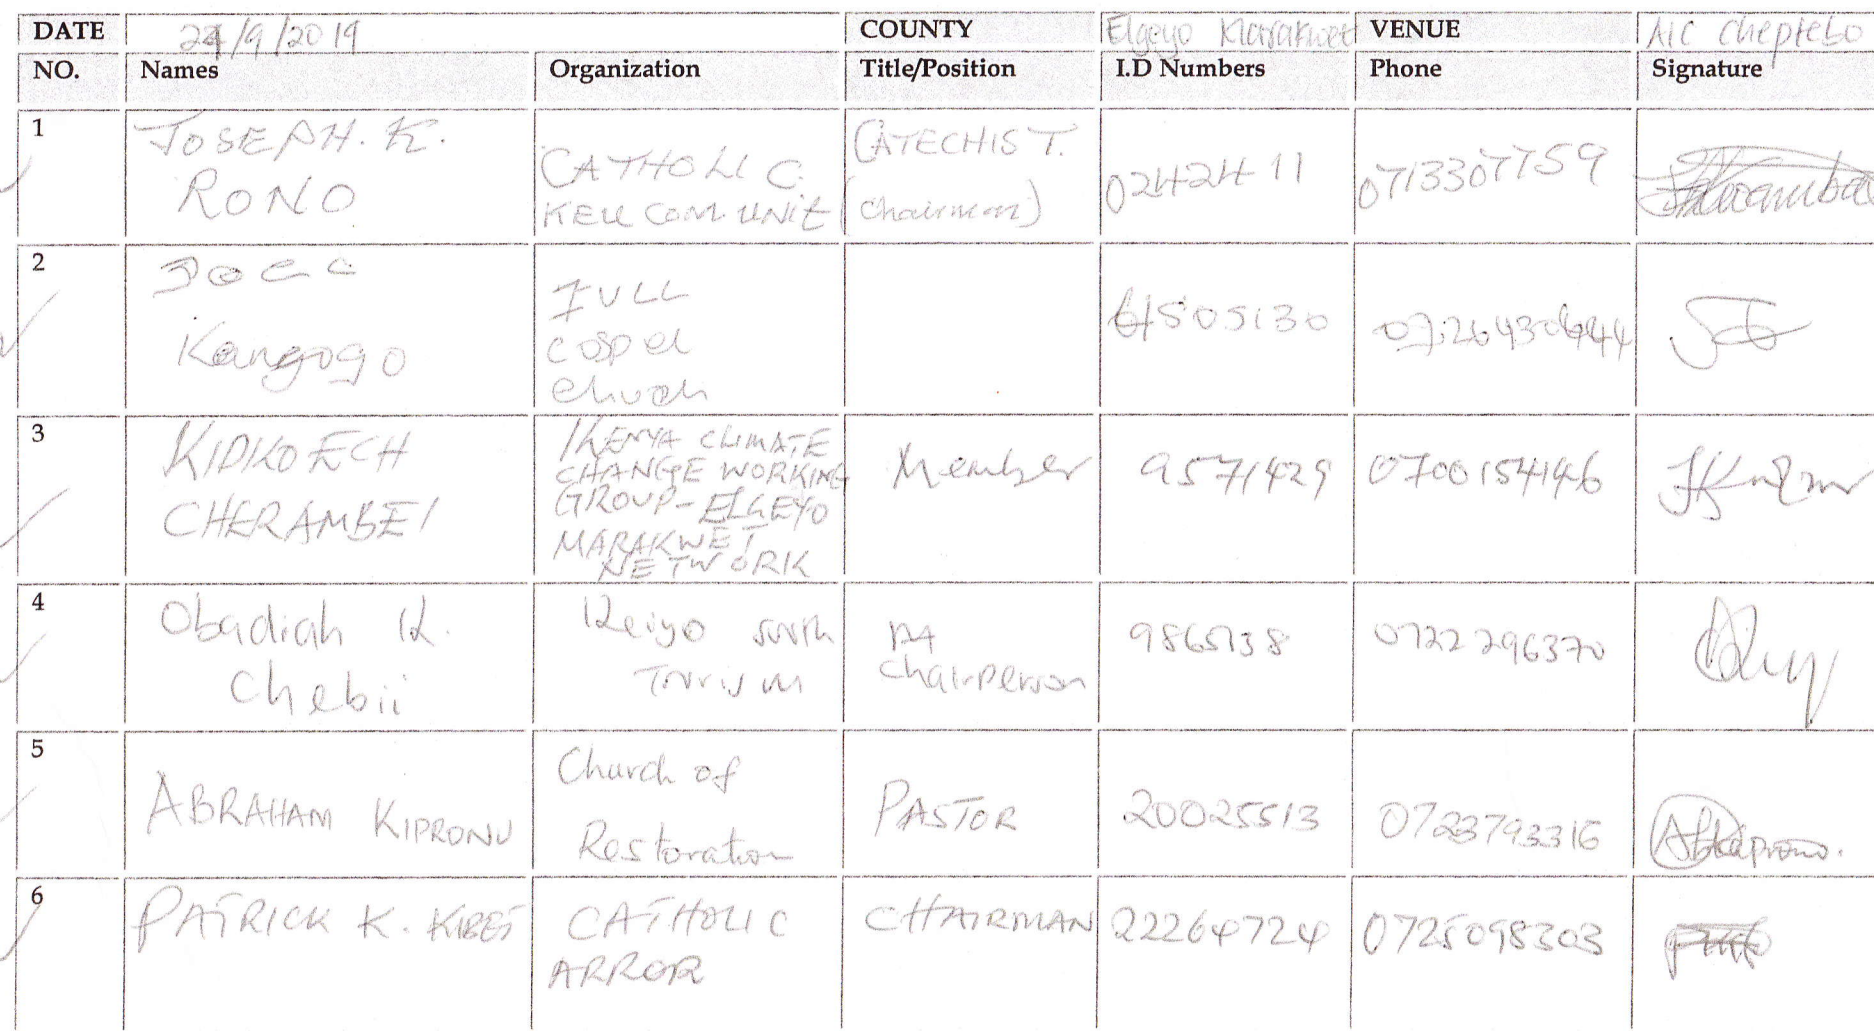 DATE 24/9/2019 COUNTY Elgeyo Marakwet VENUE AIC Cheptebo
NO. Names Organization Title/Position I.D Numbers Phone Signature
1 JOSEPH. K. RONO CATHOLIC. KEU COMUNIT CATECHIST. (Chairman) 0242411 0713307759
2 Kangogo FULL Gospel Church 
3 KIPKOECH CHERAMBEI KENYA CLIMATE CHANGE WORKING GROUP-ELGEYO MARAKWET NETWORK Member 9571429 0700154146
4 Obadiah K. Chebii Keiyo south Tourism Chairperson 9865138 0722296370
5 ABRAHAM KIPRONO Church of Restoration PASTOR 20025513 0723793316
6 PATRICK K. KIBET CATHOLIC ARROR CHAIRMAN 22264724 0725098303